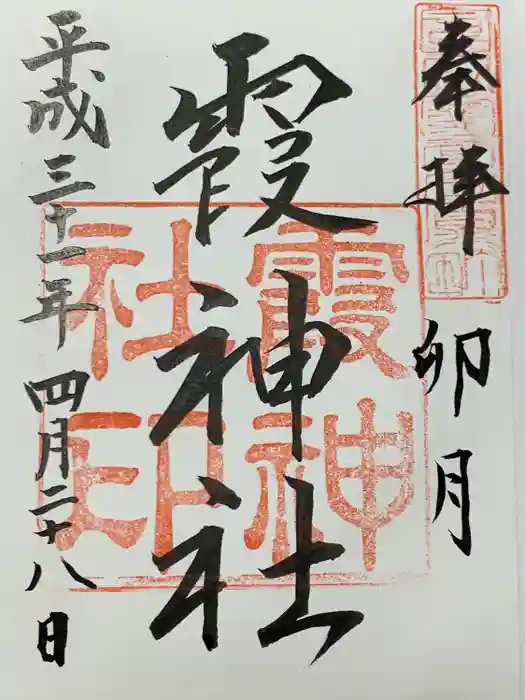 奉拝
卯月
霞神社
平成三十一年四月二十八日
霞神
社印